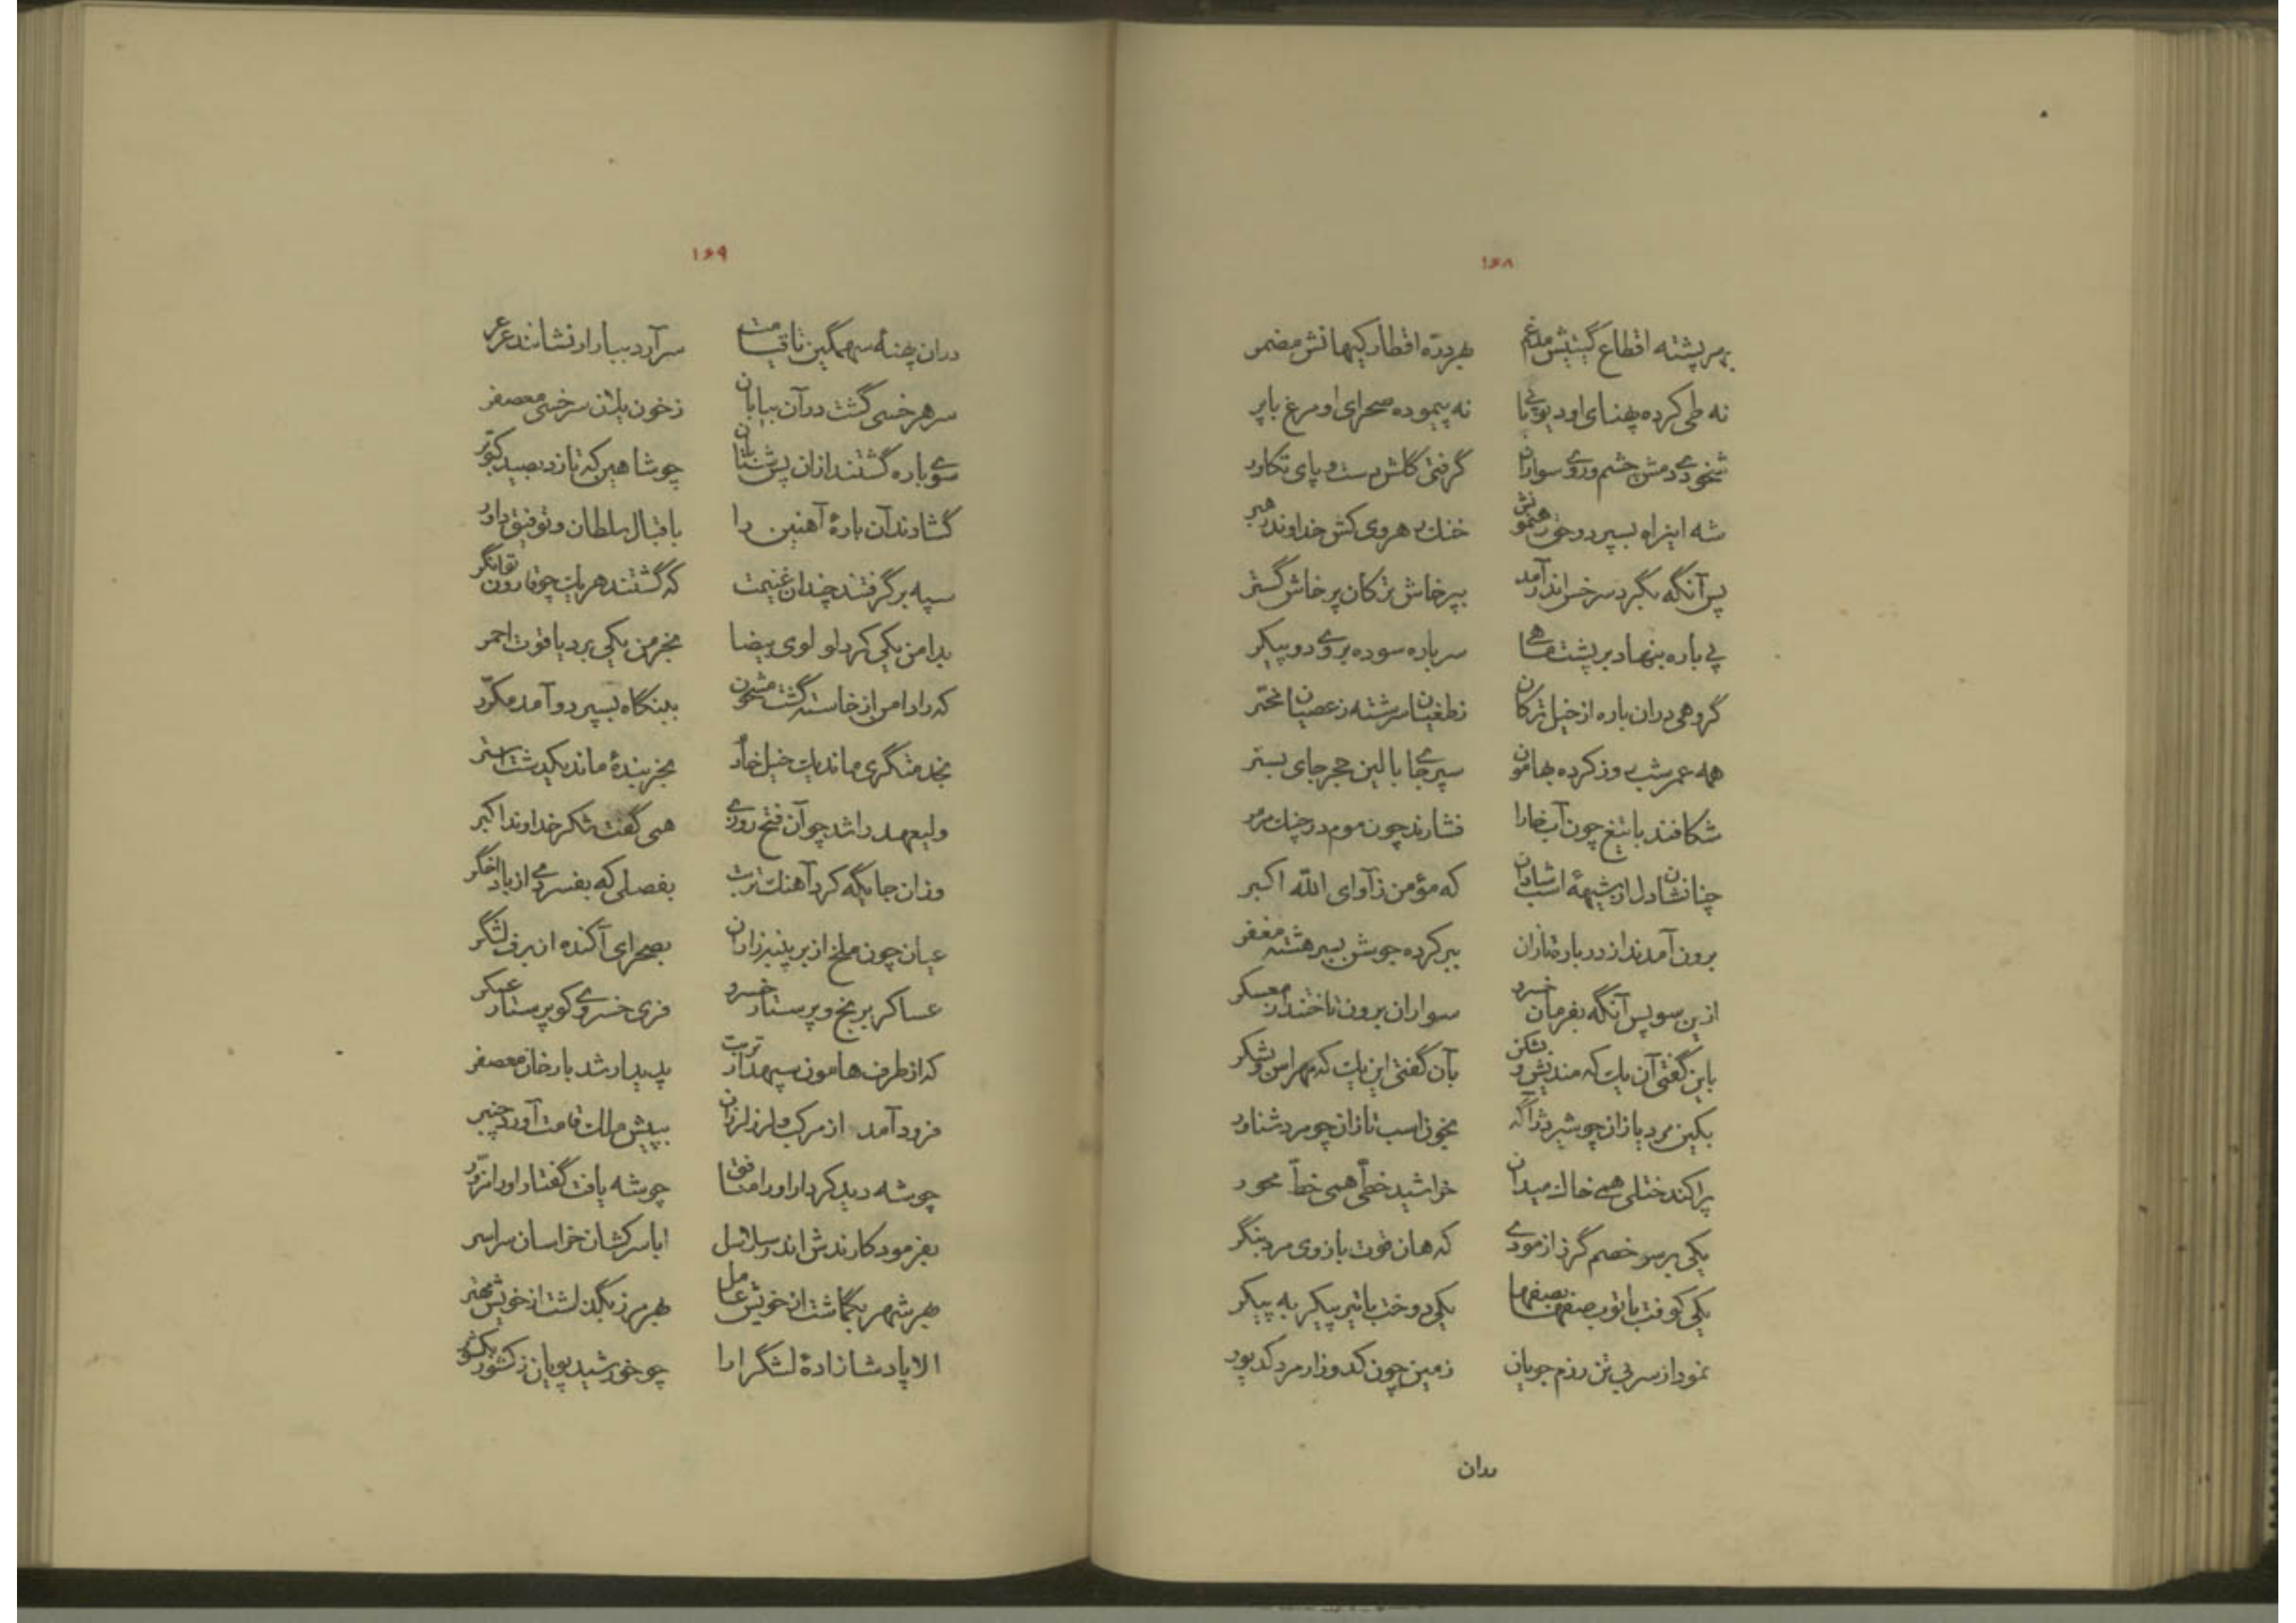 ۱۶۸
بهر پشته اقطاع گیتیش مدغم بهر درّه اقطار کیهانش مضمر
نه طی کرده پهنای او دیو پی نا نه پیموده صحرای او مرغ با پر
شخودی دمش چشم و روی سواران گرفتی گلش دست و پای تکاور
شه این راه بسپرد و حق رهنمونش خنک رهروی کش خداوند رهبر
پس آنگه بگرد سرخس اندر آمد بپرخاش ترکان پرخاش گستر
پی باره بنهاد بر پشت ماهی سر باره سوده بروی دو پیکر
گروهی دران باره از خیل ترکان ز طغیان سرشته ز عصیان مخمّر
همه عمر شب روز کرده بهامون سپر جا بالین حجر جای بستر
شکافند با تیغ چون آب خارا فشارند چون موم در چنک مرمر
چنان شادل از شیههٔ اسب شادان که مؤمن ز آوای الله اکبر
برون آمدند از در باره تازان ببر کرده جوشن بسر هشته مغفر
ازین سو پس آنگه بفرمان خسرو سواران برون تاختند از معسکر
باین گفتی آن یک که مندیش و بشکن بآن گفتی این یک که مهراس و بشکر
بکین مرد یازان چو شیر دژ آگه بخون اسب تازان چو مرد شناور
پراکند ختلی همی خاک میدان خراشید خطّی همی خطّ محور
یکی بر سر خصم گرز ازمودی که هان قوت بازوی مرد بنگر
یکی کوفت با توپ صفها بصفها یکی دوخت با تیر پیکر به پیکر
نمود از سر بی تن رزم جویان زمین چون کدوزار مرد کدیور
دران
۱۶۹
دران پهنهٔ سهمگین تا قیامت سر آرد ببار ار نشانند عرعر
سر هر خسی گشت در آن بیابان ز خون یلان سرخسی معصفر
سوی باره گشتند ازان پس شتابان چو شاهین که تازد بصید کبوتر
گشادند آن بارهٔ آهنین را باقبال سلطان و توفیق داور
سپه بر گرفتند چندان غنیمت که گشتند هر یک چو قارون توانگر
بدامن یکی کرد لولوی بیضا بخرمن یکی برد یاقوت احمر
که را دامن از خاسته گشت مشحون ببنگاه بسپرد و آمد مکرّر
بخدمتگری ماند یک خیل خاد بخربندهٔ ماند یکدشت استر
ولیعهد را شد چو آن فتح روزی همی گفت شکر خداوند اکبر
وزان جایگه کرد آهنک تربت بفصلی که بفسردمی از باد اخگر
عیان چون ملخ از بر پنبه زاران بصحرای آکنده از برف لشگر
عساکر برنج و پرستار خسرو فری خسروی کو پرستار عسکر
که از طرف هامون سپهدار تربت پدیدار شد با رخان معصفر
فرود آمد از مرکب و لرز لرزان بپیش ملک قامت آورد چنبر
چو شه دید کردار او را منافق چو شه یافت گفتار او را مزوّر
بفرمود کارندش اندر سلاسل ابا سرکشان خراسان سراسر
بهر شهر بگماشت از خویش عامل بهر مرز بگذاشت از خویش مهتر
الا پادشا زادهٔ لشگر ارا چو خورشید پویان ز کشور بکشور